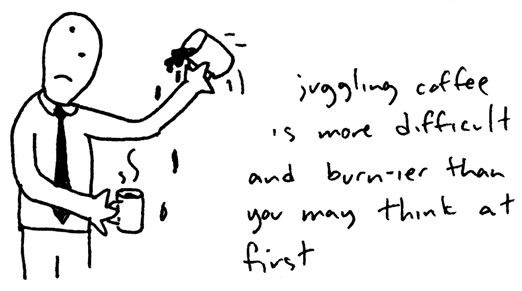 juggling coffee
is more difficult
and burn-ier than
you may think at
first